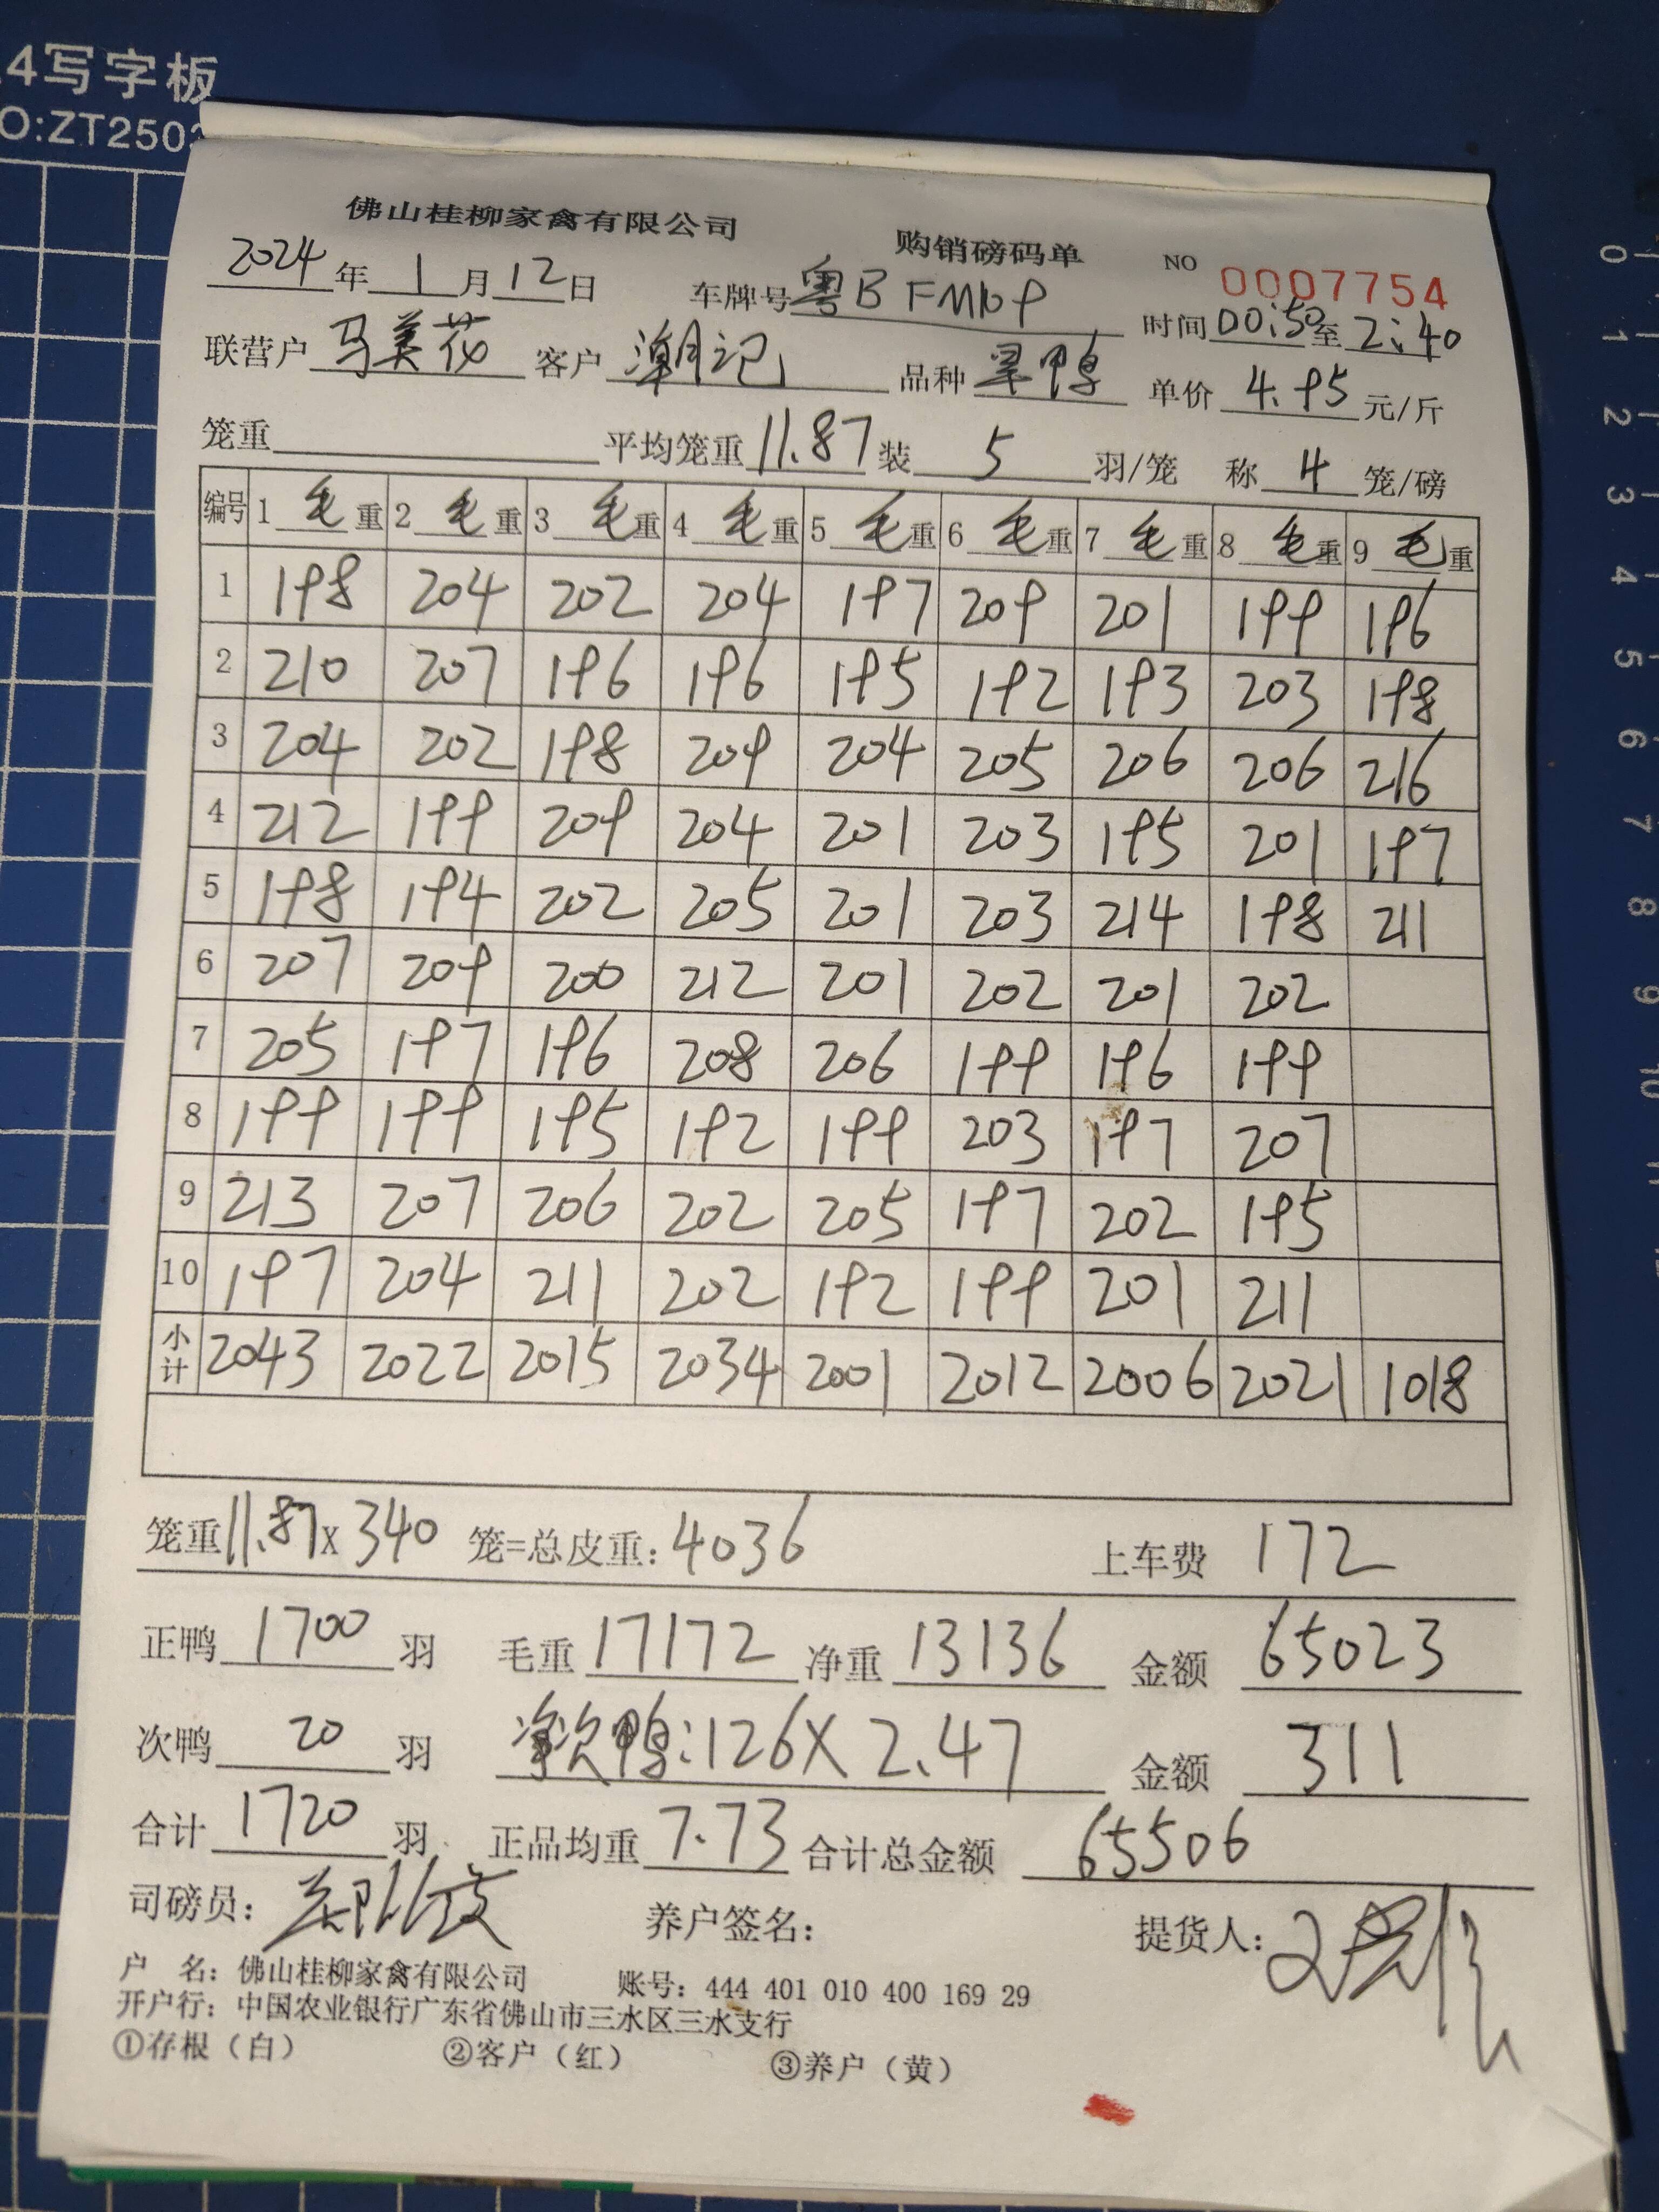 4写字板
O:ZT250
佛山桂柳家禽有限公司 购销磅码单 NO 0007754
2024年1月12日 车牌号粤B 时间00:50至2:40
联营户 马美花 客户 潮记 品种 鸭 单价 4.95 元/斤
笼重 平均笼重 11.87 装 5 羽/笼 称 4 笼/磅
编号 1 毛重 2 毛重 3 毛重 4 毛重 5 毛重 6 毛重 7 毛重 8 毛重 9 毛重
1 198 204 202 204 197 209 201 199 196
2 210 207 196 196 195 192 193 203 198
3 204 202 198 209 204 205 206 206 216
4 212 199 209 204 201 203 195 201 197
5 198 194 202 205 201 203 214 198 211
6 207 209 200 212 201 202 201 202
7 205 197 196 208 206 199 196 199
8 199 199 195 192 199 203 197 207
9 213 207 206 202 205 197 202 195
10 197 204 211 202 192 199 201 211
小计 2043 2022 2015 2034 2001 2012 2006 2021 1018
笼重11.87X340 笼=总皮重:4036 上车费 172
正鸭 1700 羽 毛重 17172 净重 13136 金额 65023
次鸭 20 羽 净次鸭:126X2.47 金额 311
合计 1720 羽 正品均重 7.73 合计总金额 65506
司磅员: 养户签名: 提货人:
户 名: 佛山桂柳家禽有限公司 账号: 444 401 010 400 169 29
开户行: 中国农业银行广东省佛山市三水区三水支行
①存根(白) ②客户(红) ③养户(黄)
0
1
2
3
4
5
6
7
8
9
10
11